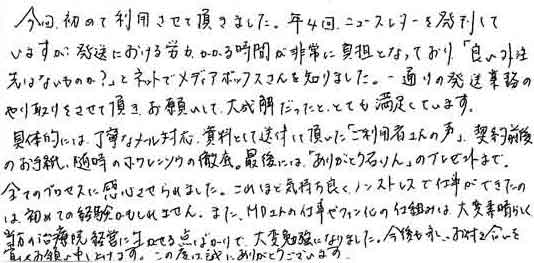 今回、初めて利用させて頂きました。年4回、ニュースレターを発刊して
いますが、発送における労力、かかる時間が非常に負担となっており、「良い外注
先はないものか?」とネットでメディアボックスさんを知りました。一通りの発送業務の
やり取りをさせて頂き、お願いして、大成解だったと、とても満足しています。
具体的には、丁寧なメール対応、資料として送付して頂いた「ご利用者さんの声」、契約前後
のお手紙、随時のホウレンソウの徹底。最後には、「ありがとう石けん」のプレゼントまで。
全てのプロセスに感心させられました。これほど気持ち良く、ノンストレスで仕事ができたの
は初めての経験かもしれません。また、MDさんの仕事やファン化の仕組みは大変素晴らしく
当方の治療院経営に生かせる点ばかりで、大変勉強になりました。今後も永いお付き合いを
お願い申し上げます。この度は誠にありがとうございます。